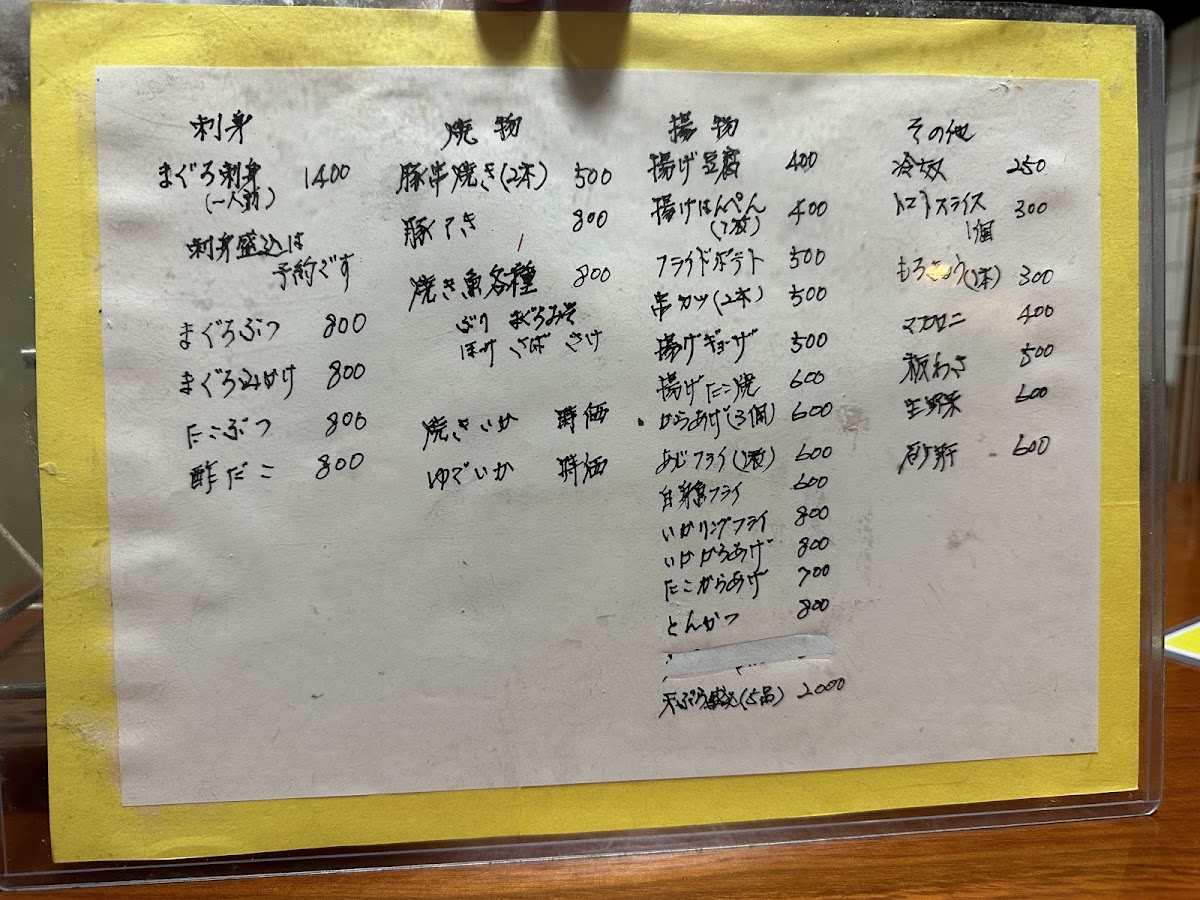 刺身
まぐろ刺身 1400
(一人前)
刺身盛込は
予約です
まぐろぶつ 800
まぐろみかけ 800
たこぶつ 800
酢だこ 800
焼物
豚串焼き(2本) 500
豚てき 800
焼き魚各種 800
ぶり まぐろみそ
ほっけ さば さけ
焼きいか 時価
ゆでいか 時価
揚物
揚げ豆腐 400
揚げはんぺん 400
(1枚)
フライドポテト 500
串カツ(2本) 500
揚げギョーザ 500
揚げたこ焼 600
からあげ(3個) 600
あじフライ(2枚) 600
白身魚フライ 600
いかリングフライ 800
いかからあげ 800
たこからあげ 700
とんかつ 800
天ぷら盛込(5品) 2000
その他
冷奴 250
トマトスライス 300
1個
もろきゅう(1本) 300
マカロニ 400
板わさ 500
生野菜 600
600